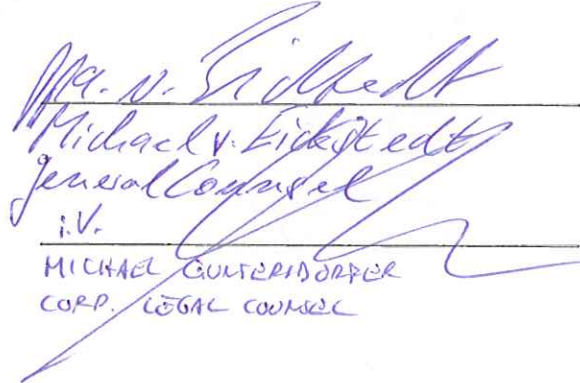 ppa. v. Eickstedt
Michael v. Eickstedt
General Counsel
i.V.
MICHAEL GUNTERSDORFER
CORP. LEGAL COUNSEL